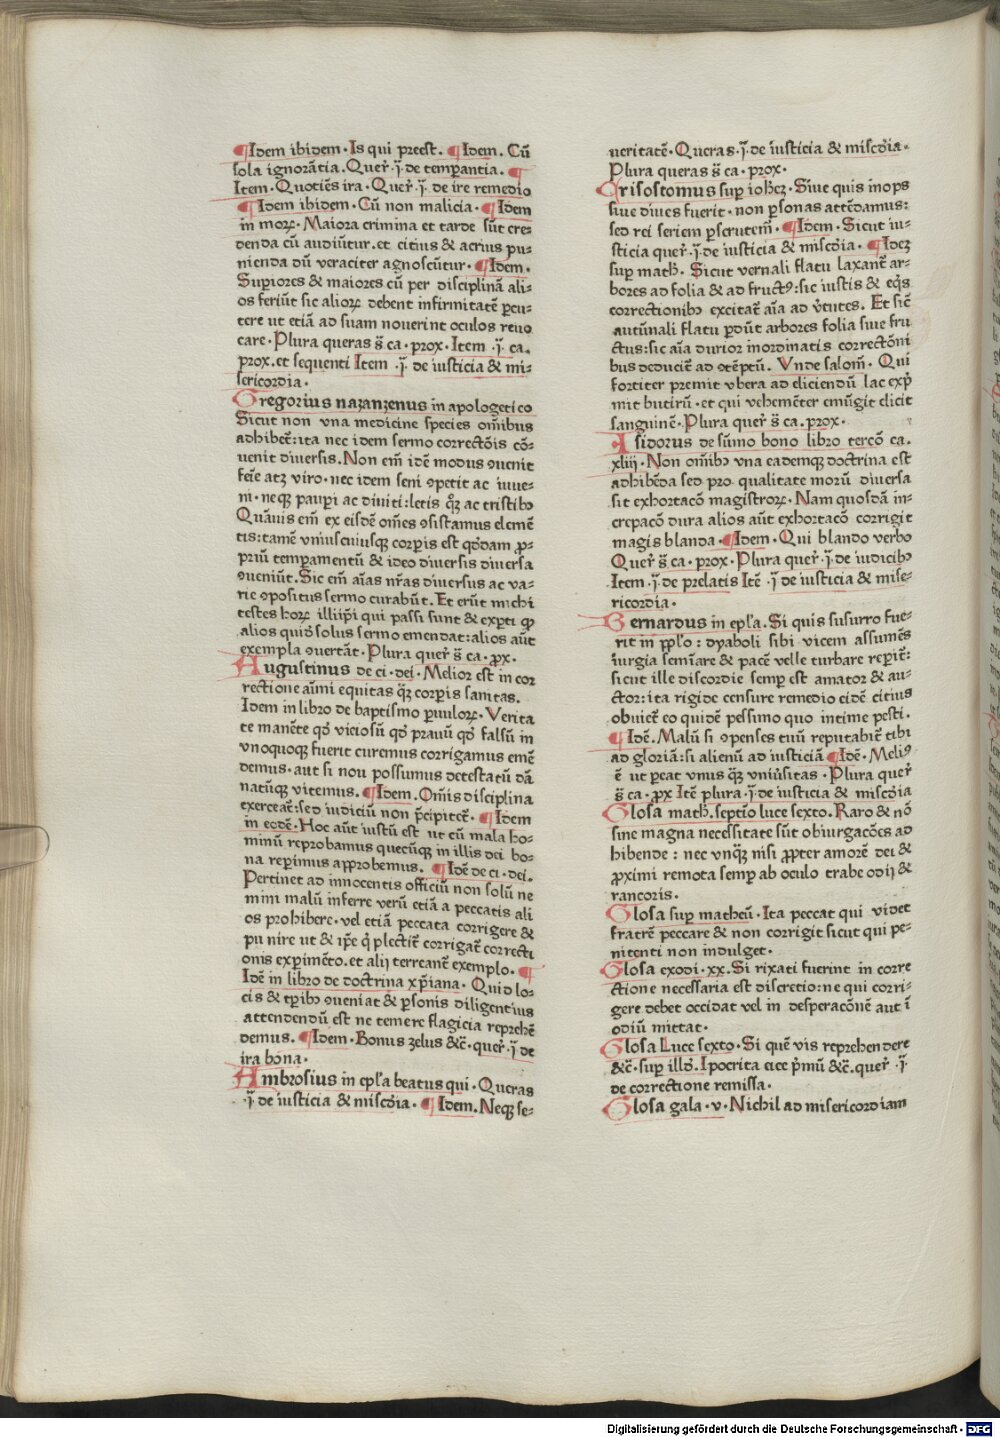 ¶Idem ibidem. Is qui preest. ¶Idem. Cū
sola ignorātia. Quer̄ .j̄. de temperantia. ¶
Item. Quotiēs ira. Quer̄ .j̄. de ire remedio
¶Idem ibidem. Cū non malicia. ¶Idem
in morꝝ. Maiora crimina et tarde sūt cre⸗
denda cū audiūtur. et citius & acrius pu⸗
nienda dū veraciter agnoscūtur. ¶Idem.
Superiores & maiores cū per disciplinā ali⸗
os feriūt sic aliorꝝ debent infirmitatē percu⸗
tere ut etiā ad suam nouerint oculos reuo
care. Plura queras s̄ ca. prox. Item .j̄. ca.
prox. et sequenti Item .j̄. de iusticia & mi⸗
sericordia.
Gregorius nazanzenus in apologetico
Sicut non vna medicine species om̄ibus
adhibet̄: ita nec idem sermo correctōis cō⸗
uenit diuersis. Non em̄ idē modus ꝯuenit
feīe atqꝫ viro. nec idem seni ꝯpetit ac iuue⸗
ni. neqꝫ pauperi ac diuiti: letis qꝫ̄ ac tristibꝫ
Quāuis em̄ ex eisdē om̄es ꝯsistamus elemē
tis: tamē vniuscuiusqꝫ corporis est qd̄dam ꝓ⸗
priū temperamentū & ideo diuersis diuersa
ꝯueniūt. Sic em̄ aīas nr̄as diuersus ac va⸗
rie ꝯpositus sermo curabūt. Et erūt michi
testes horꝝ illiip̄i qui passi sunt & experti qꝫ
alios quid̄ solus sermo emendat: alios aūt
exempla ꝯuertāt. Plura quer̄ s̄ ca. ꝓx.
Augustinus de ci. dei. Melior est in cor
rectione aīmi equitas qꝫ̄ corporis sanitas.
Idem in libro de baptismo paruulorꝝ. Verita
te manēte qd̄ viciosū qd̄ prauū qd̄ falsū in
vnoquoqꝫ fuerit curemus corrigamus emē
demus. aut si nou possumus detestatū dā
natūqꝫ vitemus. ¶Idem. Om̄is disciplina
exerceat̄: sed iudiciū non p̄cipitet̄. ¶Idem
in eodē. Hoc aūt iustū est ut cū mala ho⸗
minū reprobamus quecūqꝫ in illis dei bo⸗
na reperimus approbemus. ¶Idē de ci. dei.
Pertinet ad innocentis officiū non solū ne
mini malū inferre verū etiā a peccatis ali
os prohibere. vel etiā peccata corrigere &
pu nire ut & ip̄e q̄ plectit̄ corrigat̄ correcti
onis experimēto. et alij terreant̄ exemplo. ¶
Idē in libro de doctrina xp̄iana. Quid lo⸗
cis & tp̄ibꝫ ꝯueniat & personis diligentius
attendendū est ne temere flagicia reprehē
demus. ¶Idem. Bonus zelus &c̄. quer̄. j̄ de
ira bona.
Ambrosius in ep̄la beatus qui. Queras
.j̄. de iusticia & misc̄dia. ¶Idem. Neqꝫ se⸗
ueritatē. Queras .j̄. de iusticia & misc̄dia.
Plura queras s̄ ca. prox.
Crisostomus sup̄ ioh̄eꝫ. Siue quis inops
siue diues fuerit. non personas attēdamus:
sed rei seriem perscrutem̄. ¶Idem. Sicut iu⸗
sticia quer̄. j̄. de iusticia & misc̄dia. ¶Ideꝫ
sup̄ math̄. Sicut vernali flatu laxant̄ ar⸗
bores ad folia & ad fructꝰ: sic iustis & eq̄s
correctionibꝫ excitat̄ aīa ad v̄tutes. Et sic̄
autūnali flatu perdūt arbores folia siue fru
ctus: sic aīa durior inordinatis correctōni
bus deducit̄ ad ꝯtēptū. Vnde salom̄. Qui
fortiter premit vbera ad eliciendū lac exp̄
mit butirū. et qui vehemēter emūgit elicit
sanguinē. Plura quer̄ s̄ ca. prox.
Isidorus de sūmo bono libro tercō ca.
xliij. Non om̄ibꝫ vna eademqꝫ doctrina est
adhibēda sed pro qualitate morū diuersa
sit exhortacō magistrorꝝ. Nam quosdā in⸗
crepacō dura alios aūt exhortacō corrigit
magis blanda. ¶Idem. Qui blando verbo
Quer̄ s̄ ca. prox. Plura quer̄. j̄. de iudicibꝫ
Item .j̄. de prelatis Itē .j̄. de iusticia & mise⸗
ricordia.
Bernardus in ep̄la. Si quis susurro fue⸗
rit in pplo: dyaboli sibi vicem assumēs
iurgia semīare & pacē velle turbare reperit̄:
sicut ille discordie semper est amator & au⸗
ctor: ita rigide censure remedio eidē citius
obuiet̄ eo quidē pessimo quo intime pesti.
¶Idē. Malū si ꝯpenses tuū reputabit̄ tibi
ad gloriā: si alienū ad iusticiā ¶Idē. Meliꝰ
ē ut pereat vnus qꝫ̄ vniūsitas. Plura quer̄
s̄ ca. ꝓx Itē plura .j̄. de iusticia & misc̄dia
Glosa math̄. septīo luce sexto. Raro & nō
sine magna necessitate sūt obiurgacōes ad
hibende: nec vnqꝫ̄ nisi ꝓpter amorē dei &
ꝓximi remota semper ab oculo trabe odij &
rancoris.
Glosa sup̄ matheū. Ita peccat qui videt
fratrē peccare & non corrigit sicut qui pe⸗
nitenti non indulget.
Glosa exodi. xx. Si rixati fuerint in corre
ctione necessaria est discretio: ne qui corri⸗
gere debet occidat vel in desperacōnē aut ī
odiū mittat.
Glosa Luce sexto. Si quē vis reprehendere
&c̄. sup̄ illd̄. Ipocrita eice p̄mū &c̄. quer̄ .j̄.
de correctione remissa.
Glosa gala. v. Nichil ad misericordiam
Digitalisierung gefördert durch die Deutsche Forschungsgemeinschaft - DFG